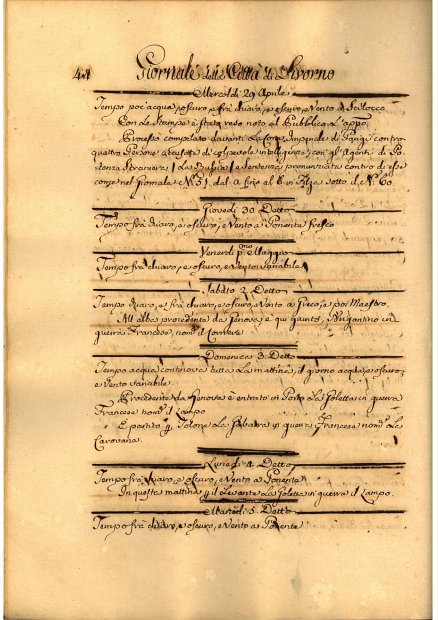 44 Giornale della Città di Livorno
Mercoldi 29 Aprile
Tempo poc'acqua, oscuro, e frà chiaro, e oscuro, e Vento a Scilocco
Con le Stampe è stata reso noto al Pubblico
Processo compilato davanti la Corte Imperiale di contro
quattro Persone accusate di colpevole intelligenza con gl'Agenti di Po-
tenza Straniera la Russia, e Sentenza pronunziata contro di esse
come nel Giornale N.° 51 dal a fino al in Filza sotto il N.° 60
Giovedi 30 Detto
Tempo frà chiaro, e oscuro, e Vento a Ponente fresco
Venerdi p.mo Maggio
Tempo frà chiaro, e oscuro, e Vento variabile
Sabato 2. Detto
Tempo chiaro, e frà chiaro, e oscuro, e Vento a Greco, e poi Maestro.
All'alba procedente da Genova è qui Giunto, Brigantino in
guerra Francese nom.to il
Domenica 3. Detto
Tempo acqua continova tutta la mattina, il giorno acqua, e oscuro,
e vento variabile
Procedente da Genova è entrato in Porto la Goletta in guerra
Francese nom.ta il Lampo
E partito p Tolone la Gabarra in guerra Francese nom.ta La
Carovana.
Lunedi 4. Detto
Tempo frà chiaro, e oscuro, e Vento a Ponente
In questa mattina p il Levante la Goletta in guerra il Lampo.
Martedi 5. Detto
Tempo frà chiaro, e oscuro, e Vento a Ponente